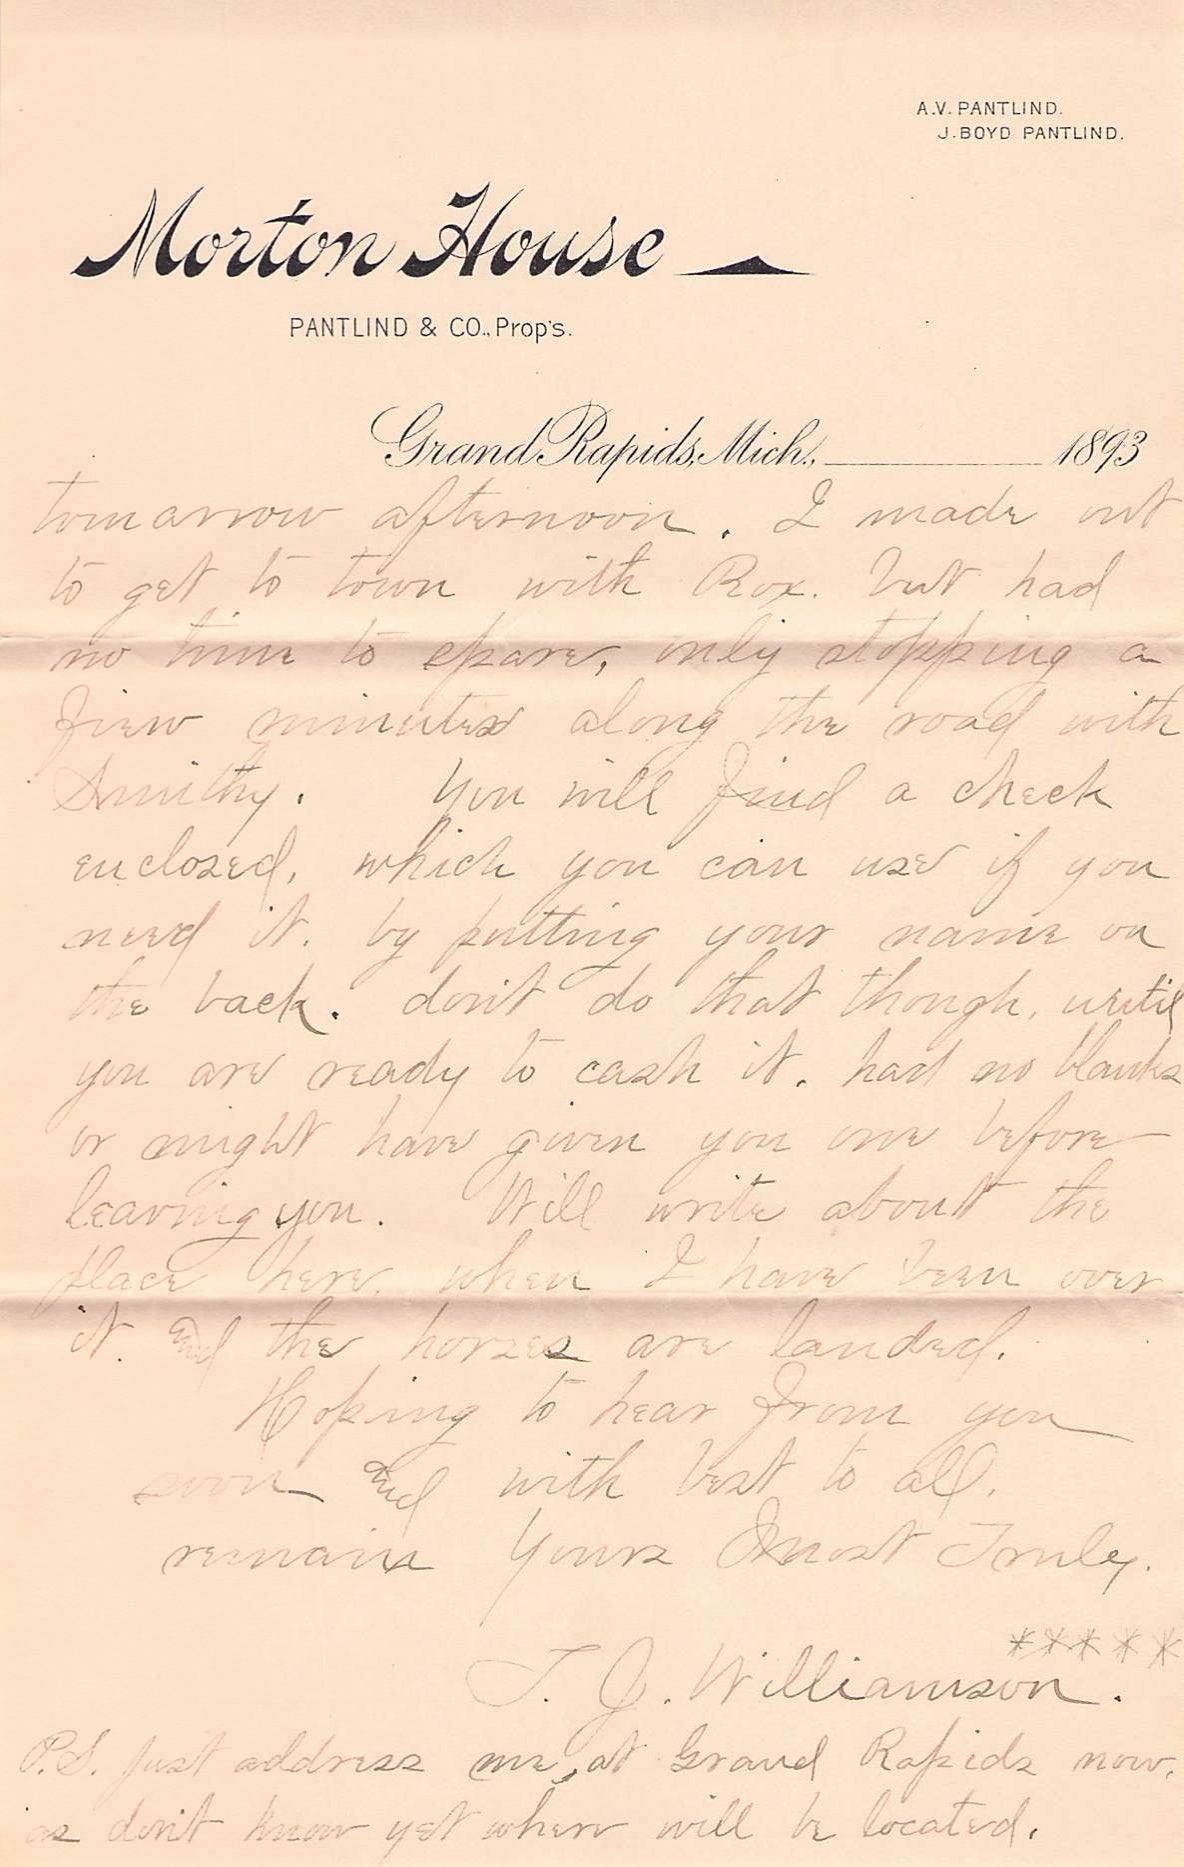 A.V. PANTLIND.
J. BOYD PANTLIND.
Morton House
PANTLIND & CO., Prop's.
Grand Rapids, Mich., 1893
tomarrow afternoon. I made out
to get to town with Rox. but had
no time to spare, only stopping a
fiew minutes along the road with
Smithy. You will find a check
enclosed, which you can use if you
need it. by putting your name on
the back. don't do that though, until
you are ready to cash it. had no blanks
or might have given you one before
leaving you. Will write about the
place here. when I have been over
it. and the horses are landed.
Hoping to hear from you
soon and with best to all.
remain Yours Most Truley.
* * * * *
T. J. Williamson.
P.S. Just address me, at Grand Rapids now.
as don't know yet where will be located.